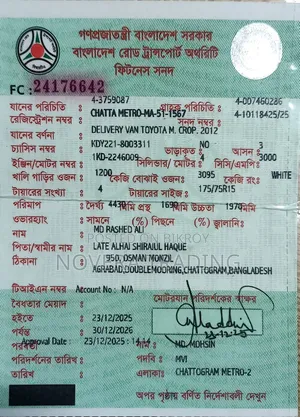 গণপ্রজাতন্ত্রী বাংলাদেশ সরকার
বাংলাদেশ রোড ট্রান্সপোর্ট অথরিটি
ফিটনেস সনদ
FC : 24176642
যানের পরিচিতি : 4-3759087 গ্রাহক পরিচিতি : 4-007460286
রেজিস্ট্রেশন নম্বর : CHATTA METRO-MA-51-1567 সনদ নম্বর : 4-10118425/25
যানের বর্ণনা : DELIVERY VAN TOYOTA M. CROP. 2012
চ্যাসিস নম্বর : KDY221-8003311 NO 3
ইঞ্জিন/মোটর নম্বর : 1KD-2246009 সিলিন্ডার/ মোটর : 4 সিসি/এমপি: 3000
খালি গাড়ির ওজন : 1200 কেজি বোঝাই ওজন: 3095 কেজি রং: WHITE
টায়ারের সংখ্যা : 4 টায়ারের সাইজ : 175/75R15
পরিমাপ : দৈর্ঘ্য 4430 মিমি প্রস্থ 1690 মিমি উচ্চতা 1970 মিমি
ওভারহ্যাং : সামনে (%) পিছনে (%) জ্বালানি:
নাম : MD RASHED ALI
পিতা/স্বামীর নাম : LATE ALHAJ SHIRAJUL HAQUE
ঠিকানা : 950, OSMAN MONZIL
AGRABAD,DOUBLEMOORING,CHATTOGRAM,BANGLADESH
টিআইএন নাম্বার Account No : N/A
বৈধতার মেয়াদ : মোটরযান পরিদর্শকের স্বাক্ষর
হইতে : 23/12/2025
পর্যন্ত : 30/12/2026
Approval Date : 23/12/2025
পরবর্তী নাম : MD. MOHSIN
পরিদর্শনের তারিখ : পদবি : MVI
তারিখ : এলাকা: CHATTOGRAM METRO-2
অপর পৃষ্ঠায় বর্ণিত নির্দেশাবলী দেখুন